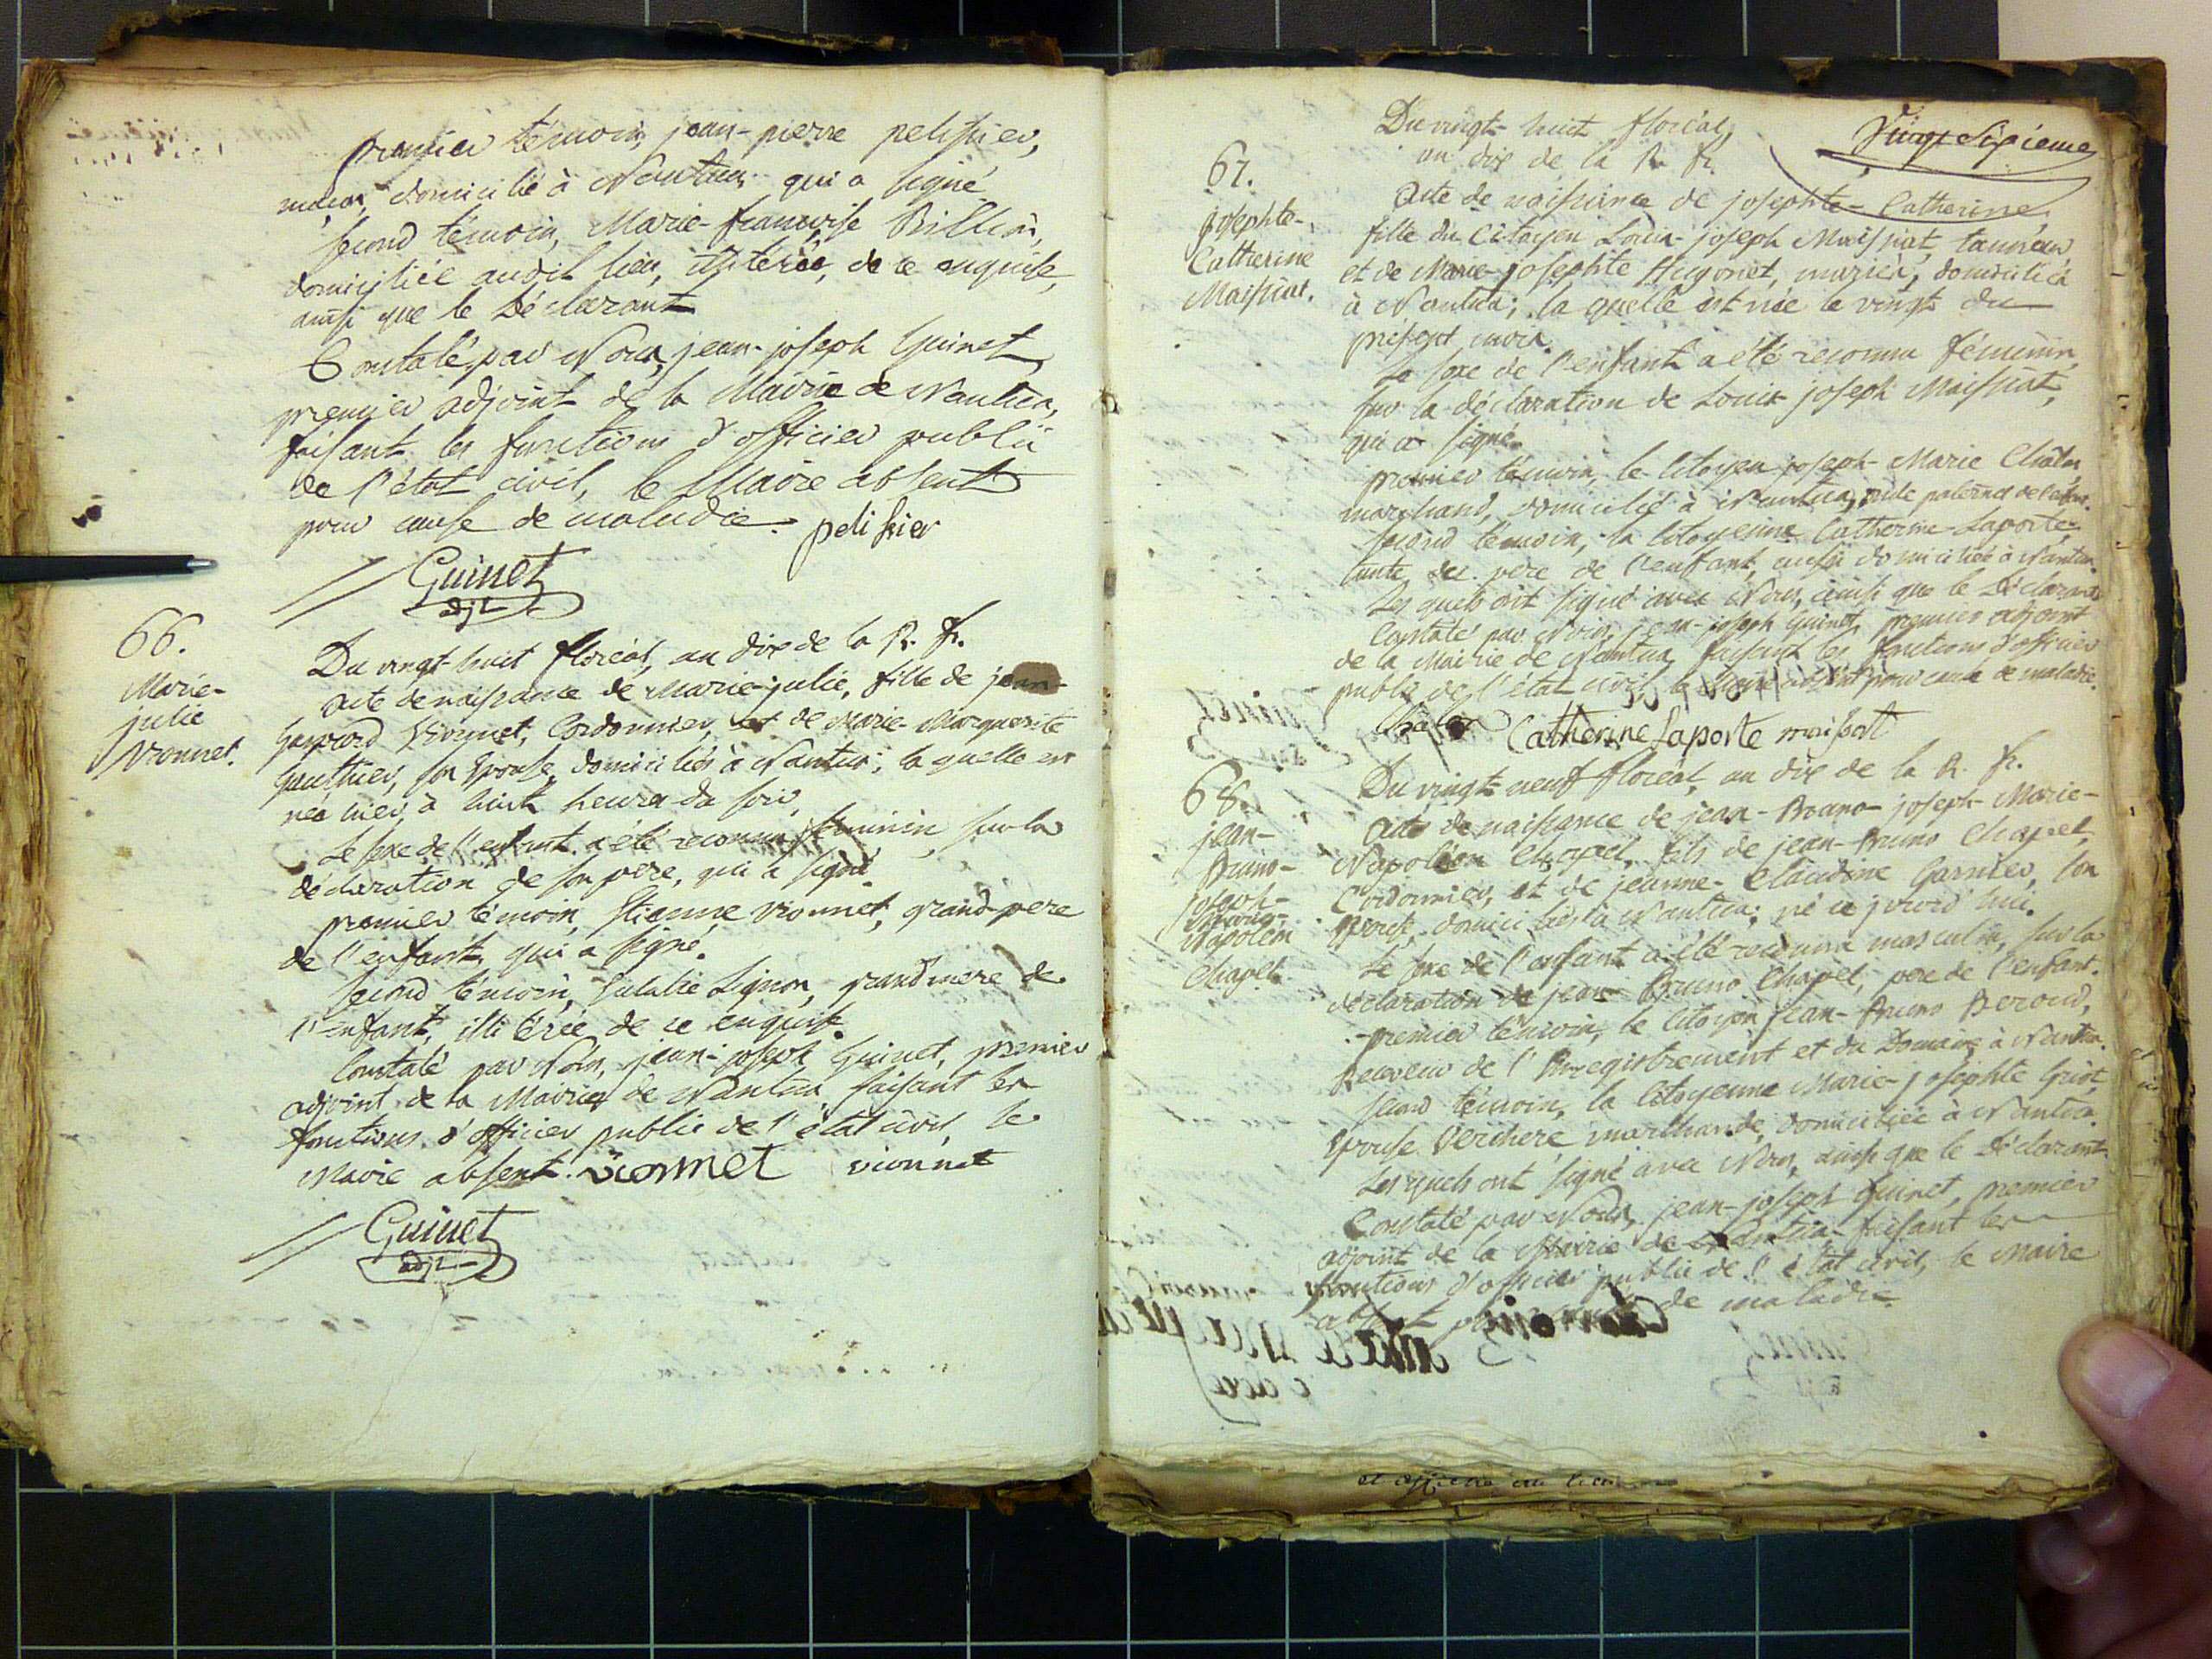 premier témoin, jean-pierre pelissier,
maçon, domicilié à Nantua, qui a signé
second témoin, Marie-françoise Billion,
domiciliée audit lieu, illiterée, de ce enquise,
ainsi que le Déclarant
Constaté par Nous, jean-joseph Guinet
premier adjoint de la Mairie de Nantua,
faisant les fonctions d'officier public
de l'état civil, le Maire absent
pour cause de maladie. pelissier
Guinet
adjt
66.
Marie-
julie
Vionnet.
Du vingt-huit floréal, an dix de la R. fr.
acte de naissance de Marie-julie, fille de jean-
Gaspard Vionnet, Cordonnier, et de Marie Marguerite
Gauthier, son Epouse, domiciliés à Nantua; la quelle est
née hier, à huit heures du soir,
Le sexe de l'enfant a été reconnu féminin, sur la
déclaration de son père, qui a signé.
premier témoin, Etienne Vionnet, grand-père
de l'enfant, qui a signé.
second témoin, Eulalie Lignon, grand'mere de
l'enfant, illitérée de ce enquise.
Constaté par Nous, jean-joseph Guinet, premier
adjoint de la Mairie de Nantua faisant les
fonctions d'officier public de l'état civil, le
Maire absent. Vionnet vionnet
Guinet
adjt
Vingt Sixieme
67.
josephte-
Catherine
Maissiat.
Du vingt-huit floréal,
an dix de la R. fr.
acte de naissance de josephte-Catherine,
fille du Citoyen Louis-joseph Maissiat, tanneur,
et de Marie-josephte Hugonet, mariés, domiciliés
à Nantua; la quelle est née le vingt du
présent mois.
Le sexe de l'enfant a été reconnu féminin,
sur la déclaration de Louis joseph Maissiat,
qui a signé.
premier témoin, le Citoyen joseph-Marie
marchand, domicilié à Nantua, paternel de l'enfant.
second témoin, la Citoyenne Catherine Laporte,
tante du père de l'enfant, aussi domiciliée à Nantua.
Les quels ont signé avec Nous, ainsi que le Déclarant
Constaté par Nous, jean-joseph Guinet, premier adjoint
de la Mairie de Nantua, faisant les fonctions d'officier
public de l'état civil, le Maire absent pour cause de maladie.
Catherine Laporte maissiat
68.
jean-
Bruno-
joseph-
Marie-
Napoléon
Chapel.
Du vingt-neuf floréal, an dix de la R. fr.
acte de naissance de jean-Bruno-joseph-Marie-
Napoléon Chapel, fils de jean-Bruno Chapel,
Cordonnier, et de jeanne-Claudine Garnier, son
Epouse, domiciliés à Nantua; né ce jourd'hui.
Le sexe de l'enfant a été reconnu masculin, sur la
déclaration de jean Bruno Chapel, père de l'enfant.
premier témoin, le Citoyen jean-Bruno Beroud,
Receveur de l'Enregistrement et du Domaine, à Nantua.
second témoin, la Citoyenne Marie-josephte
Epouse Verchere, marchande, domiciliée à Nantua.
Les quels ont signé avec Nous, ainsi que le Déclarant
Constaté par Nous, jean-joseph Guinet, premier
adjoint de la Mairie de Nantua faisant les
fonctions d'officier public de l'état civil, le Maire
absent de maladie.